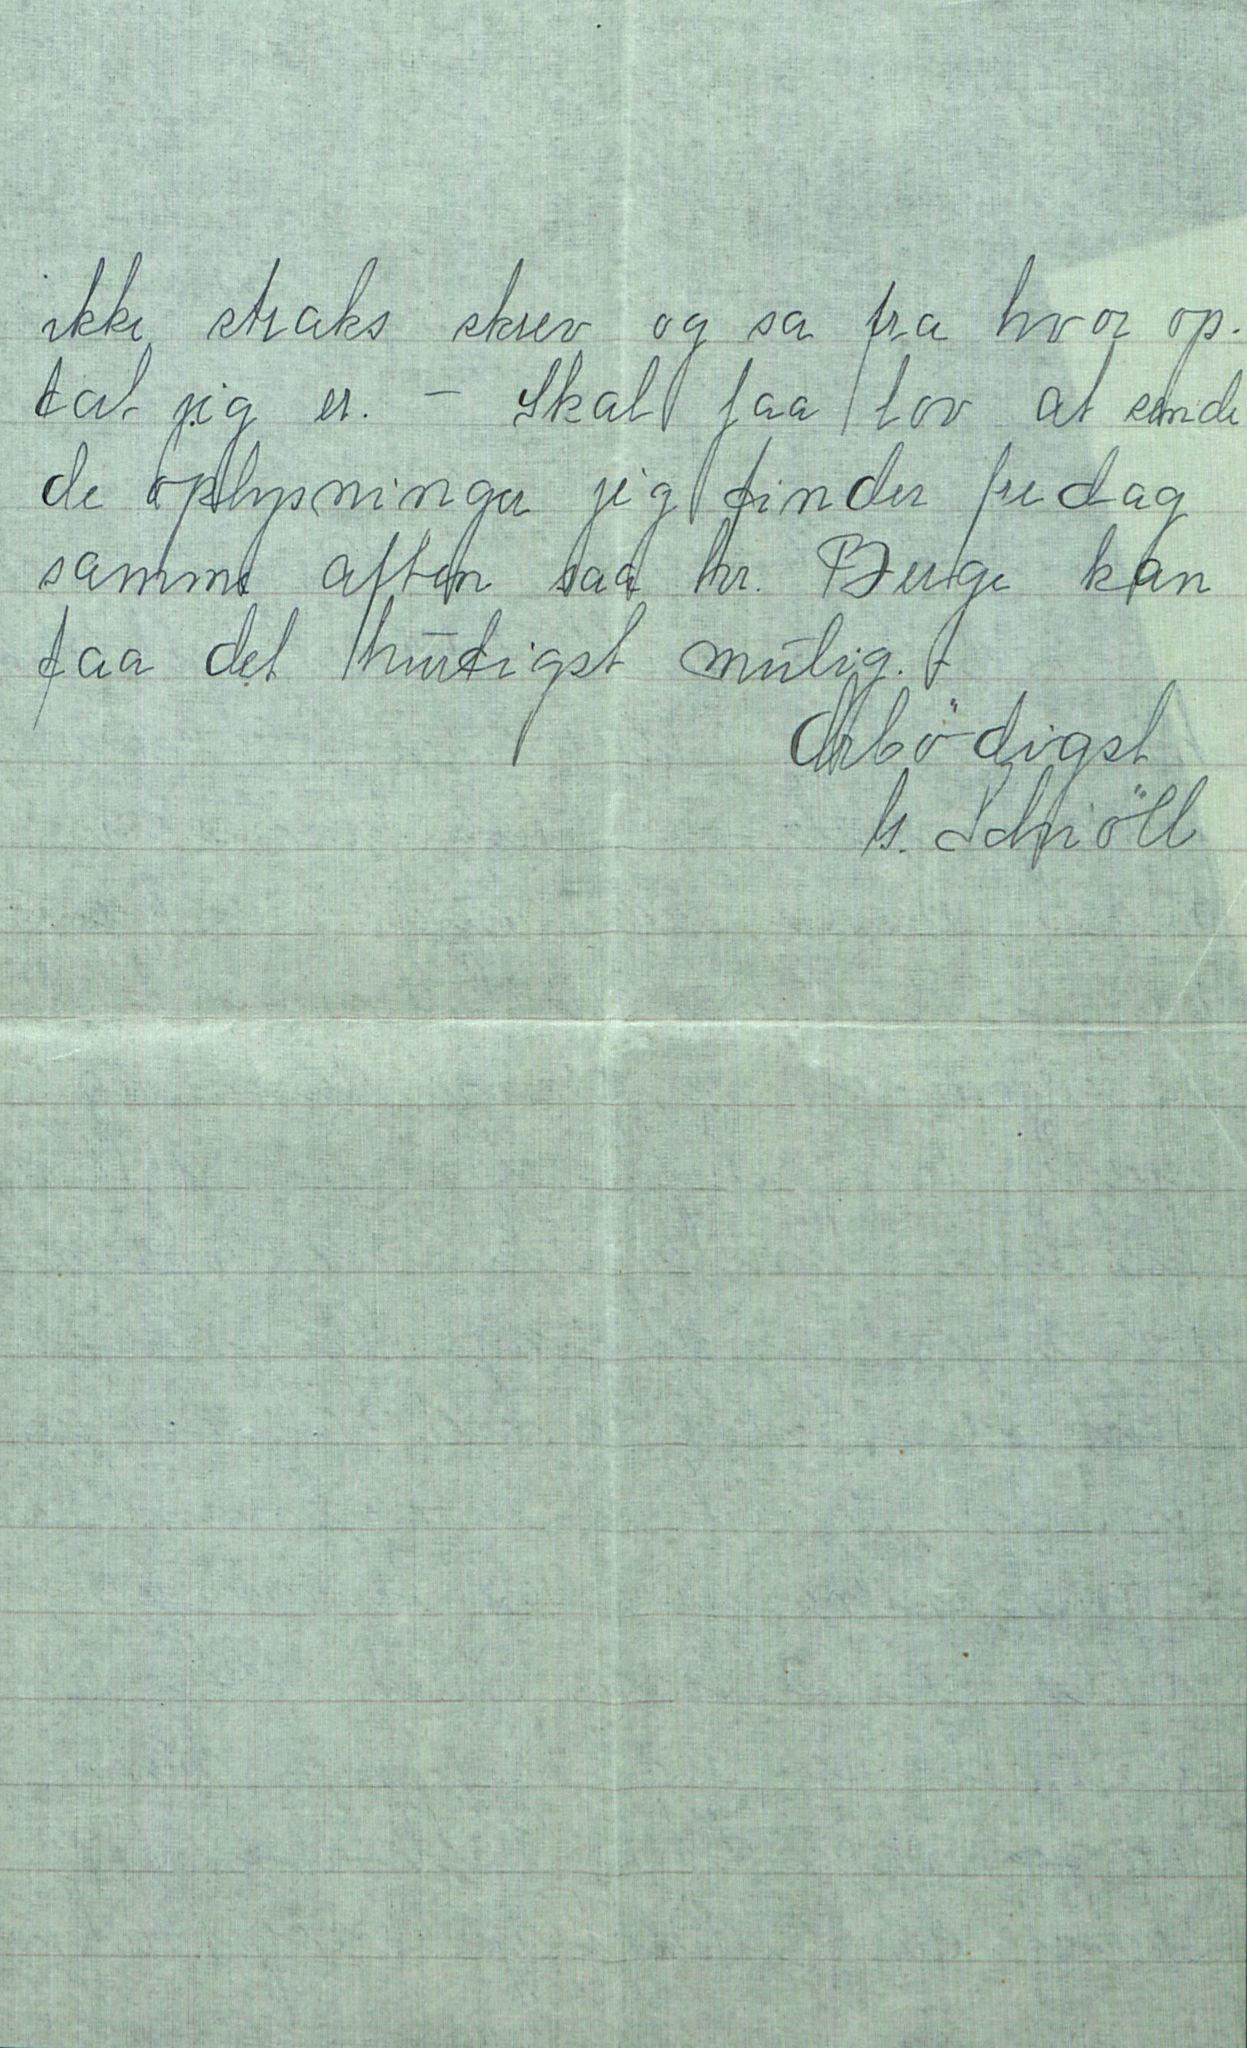 ikke straks skrev og sa fra hvor op-
tat jeg er. — Skal faa lov at sende
de oplysninger jeg finder fredag
samme aften saa hr. Berge kan
faa det hurtigst mulig. -
Ærbödigst
G. Schiöll